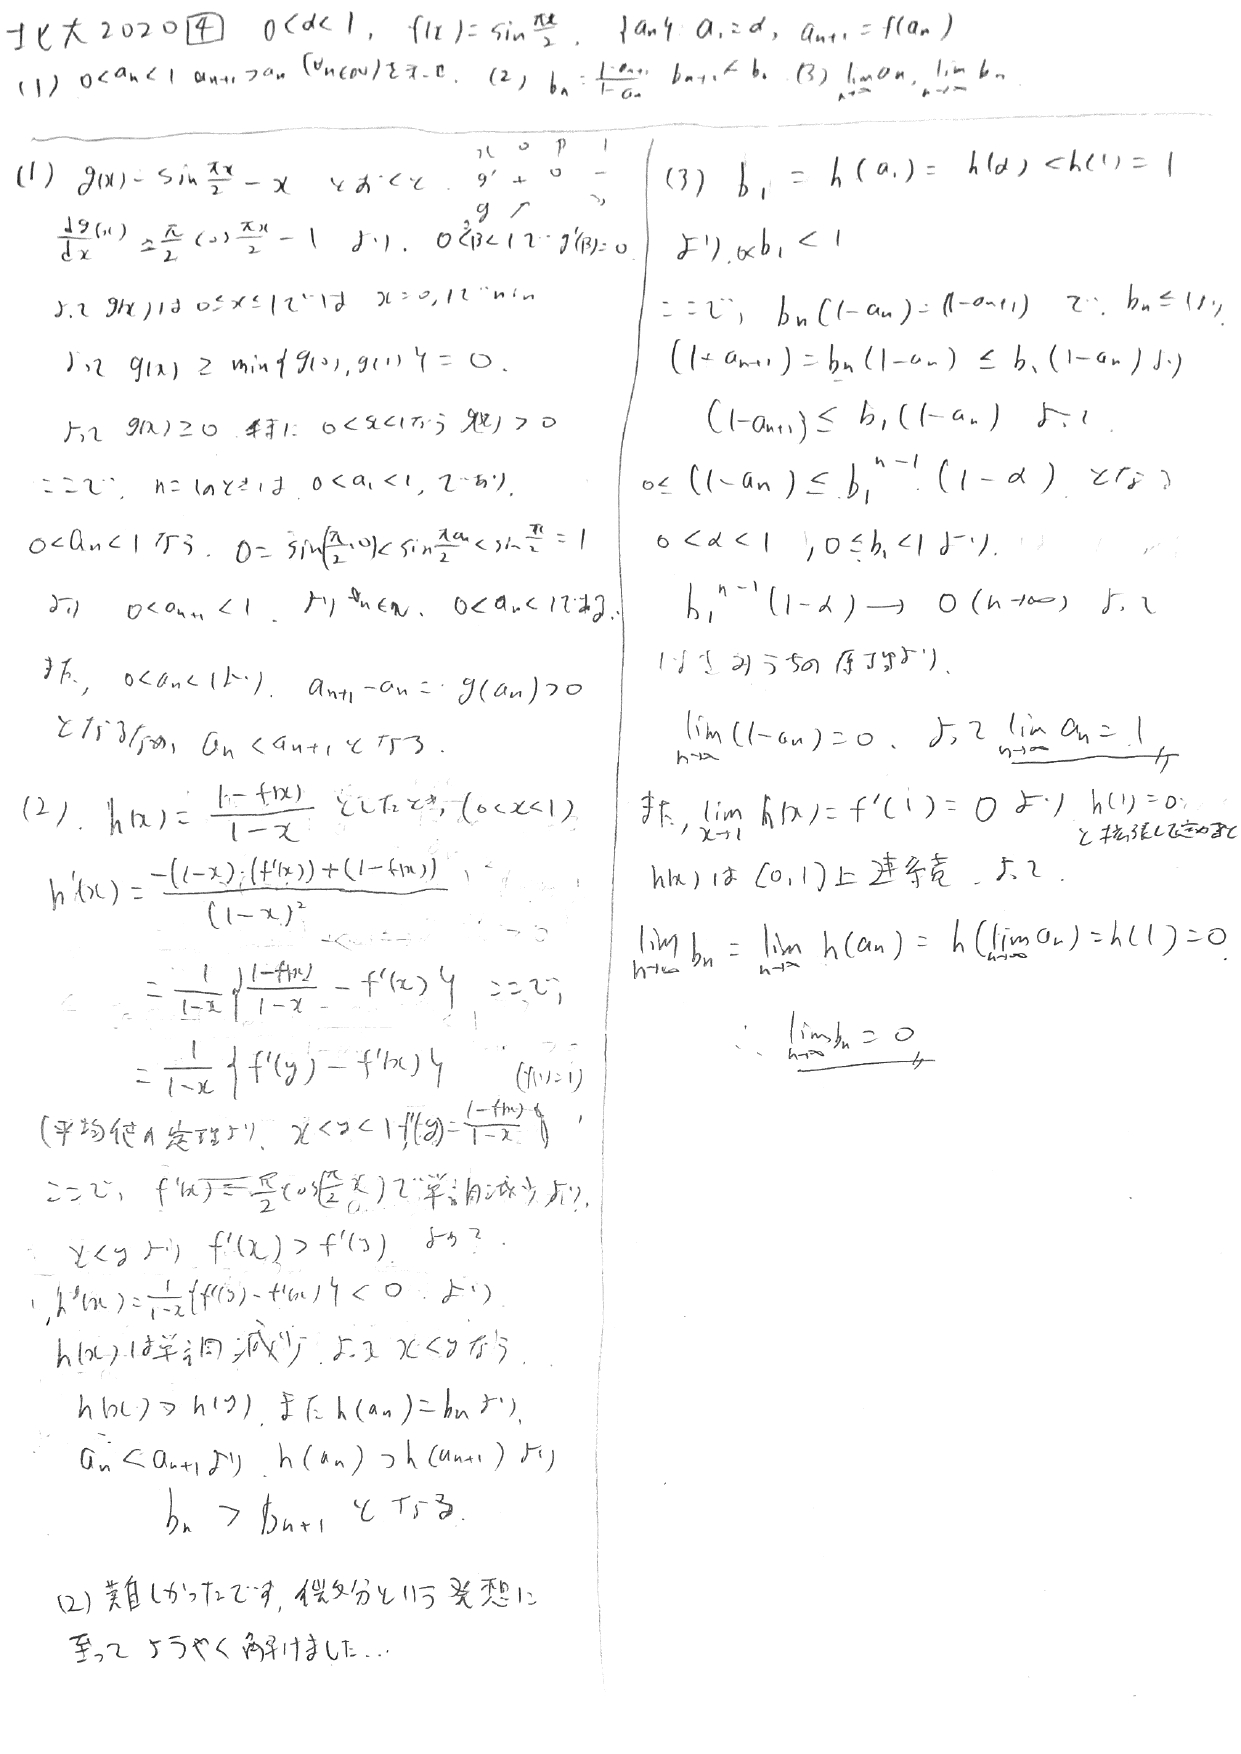 北大2020 4 0<α<1, f(x)=sin πx/2, {an}: a1=α, an+1=f(an)
(1) 0<an<1 an+1>an (∀n∈N)を示せ. (2) bn=(1-an+1)/(1-an) bn+1<bn (3) lim n→∞ an, lim n→∞ bn
(1) g(x)=sin πx/2 - x とおくと.
x 0 β 1
g' + 0 -
g ↗ ↘
dg(x)/dx = π/2 cos πx/2 - 1 より. 0<∃β<1で g'(β)=0
よって g(x)は 0≤x≤1では x=0,1で min
よって g(x) ≥ min{g(0), g(1)} = 0.
よって g(x)≥0 特に 0<x<1なら g(x)>0
ここで, n=1のときは 0<a1<1, であり,
0<an<1なら. 0=sin(π/2・0)<sin πan/2<sin π/2=1
より 0<an+1<1. より ∀n∈N, 0<an<1である.
また, 0<an<1より. an+1-an = g(an)>0
となるため, an<an+1となる.
(2). h(x)=(1-f(x))/(1-x) としたとき, (0<x<1)
h'(x)=(-(1-x)・(f'(x))+(1-f(x)))/(1-x)²
= 1/(1-x) {(1-f(x))/(1-x) - f'(x)} ここで,
= 1/(1-x) {f'(y) - f'(x)} (f(1)=1)
(平均値の定理より, x<y<1 f'(y)=(1-f(x))/(1-x))
ここで, f'(x)=π/2 cos(π/2 x)で単調減少より,
x<yより f'(x)>f'(y) よって.
h'(x)=1/(1-x){f'(y)-f'(x)}<0 より
h(x)は単調減少 よって x<yなら
h(x)>h(y), また h(an)=bnより,
an<an+1より h(an)>h(an+1)より
bn > bn+1 となる.
(2)難しかったです, 微分という発想に
至ってようやく解けました...
(3) b1 = h(a1) = h(α) < h(1) = 1
より, 0<b1<1
ここで, bn(1-an)=(1-an+1) で. bn≤b1より,
(1-an+1)=bn(1-an) ≤ b1(1-an)より
(1-an+1)≤ b1(1-an) よって
0≤(1-an)≤ b1^(n-1)(1-α) となる
0<α<1, 0≤b1<1より.
b1^(n-1)(1-α)→0 (n→∞) よって
はさみうちの原理より,
lim n→∞ (1-an)=0. よって lim n→∞ an=1
また, lim x→1 h(x)=f'(1)=0より h(1)=0
と拡張して定めると
h(x)は(0,1]上連続. よって
lim n→∞ bn = lim n→∞ h(an) = h(lim n→∞ an)=h(1)=0
∴ lim n→∞ bn = 0